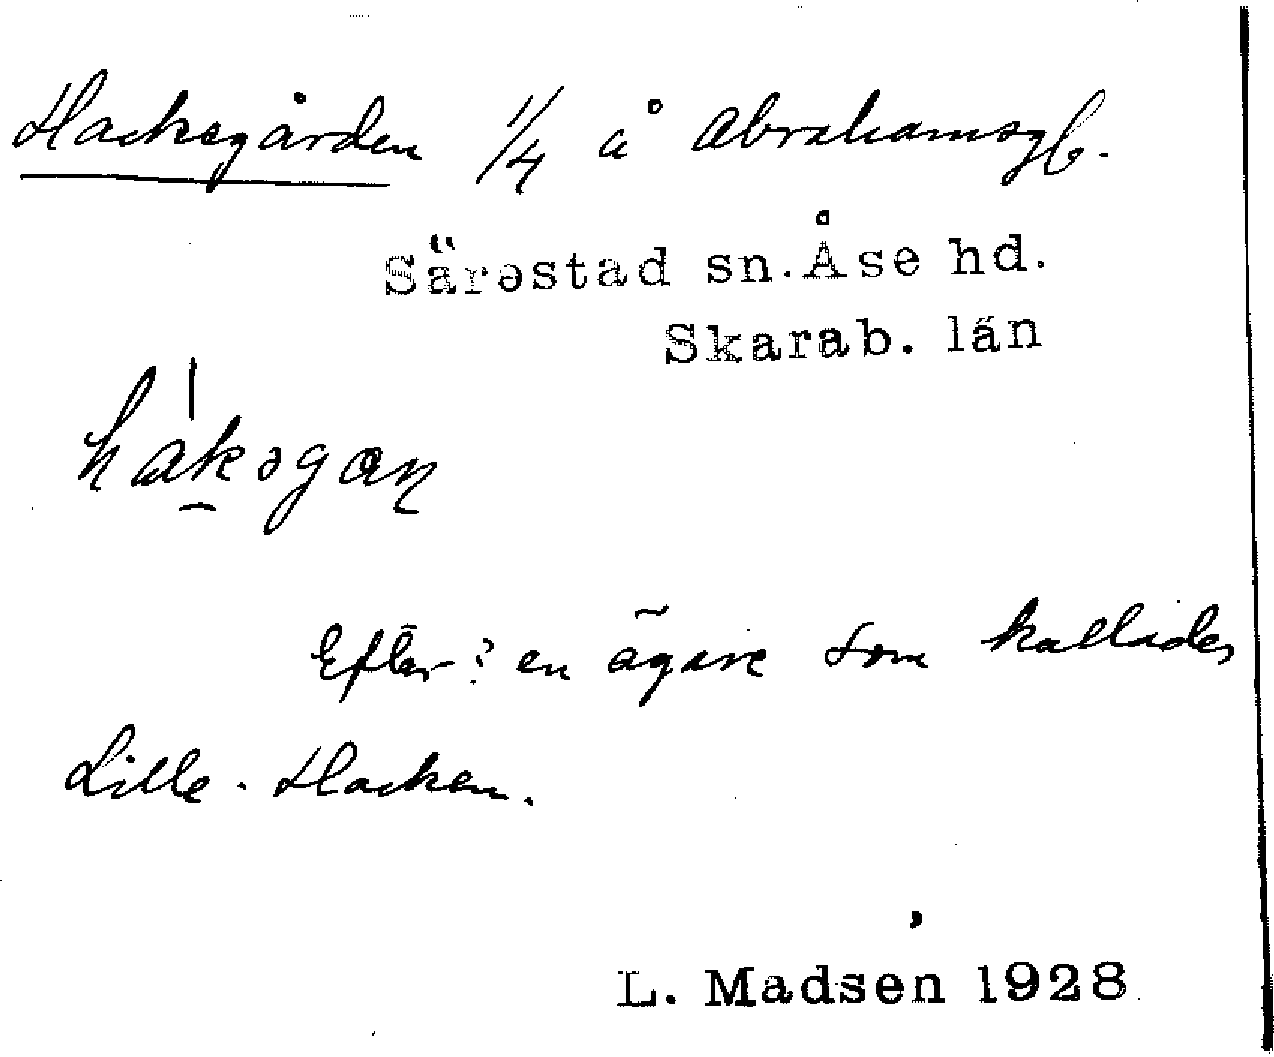 Hackegården 1/4 å Abrahamsgb.
Särestad sn. Åse hd.
Skarab. län
hákəgaṇ
Efter? en ägare som kallades
Lille-Hacken.
L. Madsen 1928